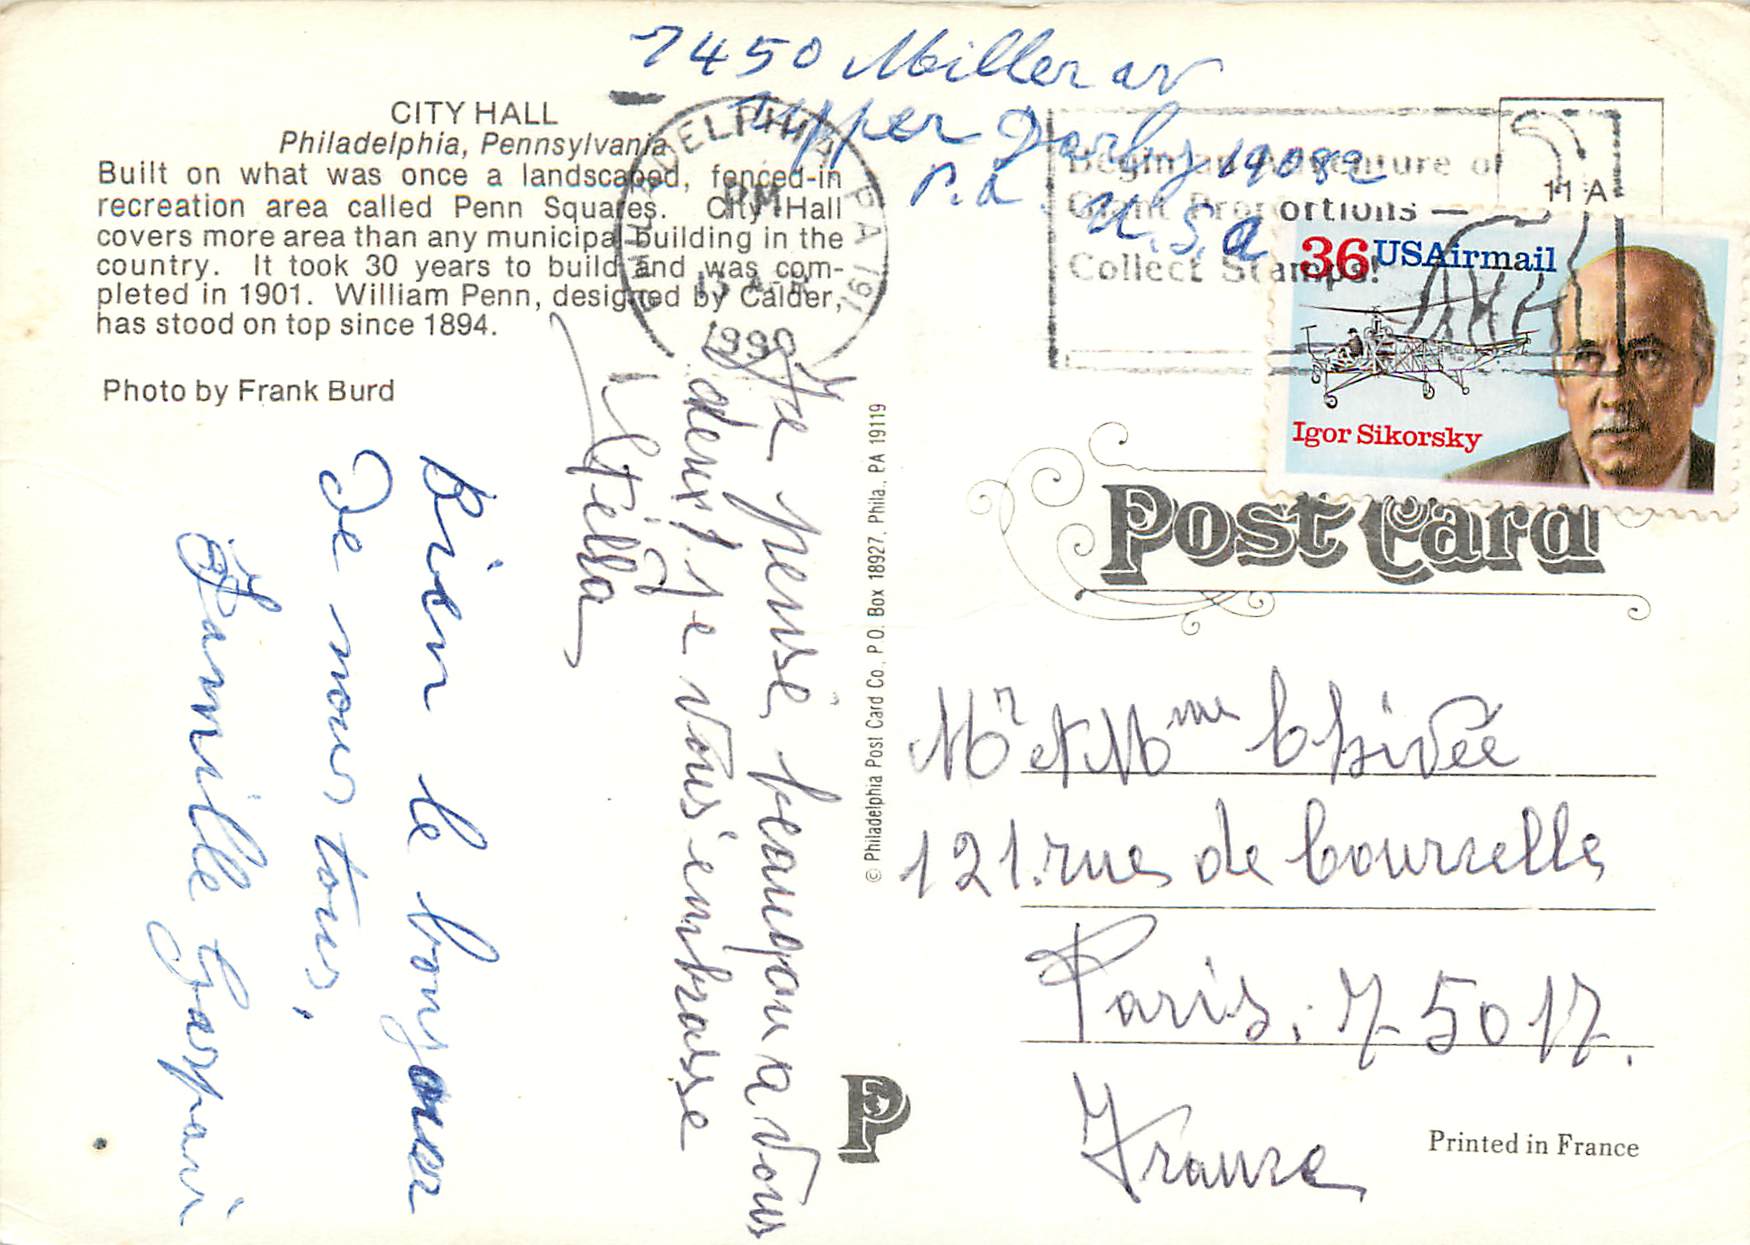 7450 Miller av
Upper Darby 19082
P.a. U.S.a
CITY HALL
Philadelphia, Pennsylvania
Built on what was once a landscaped, fenced-in
recreation area called Penn Squares. City Hall
covers more area than any municipal building in the
country. It took 30 years to build and was com-
pleted in 1901. William Penn, designed by Calder,
has stood on top since 1894.
Photo by Frank Burd
PHILADELPHIA PA 191
PM
1990
Begin an Adventure of
Giant Proportions —
Collect Stamps!
11 A
36 USAirmail
Igor Sikorsky
Post Card
Je pense beaucoup a vous
deux! je vous embrasse
Stella
Bien le bonjour
De nous tous,
Famille Gaspari
© Philadelphia Post Card Co., P.O. Box 18927, Phila., PA 19119
Mr et Mme
121. rue de Courcelles
Paris. 75017.
France
P
Printed in France